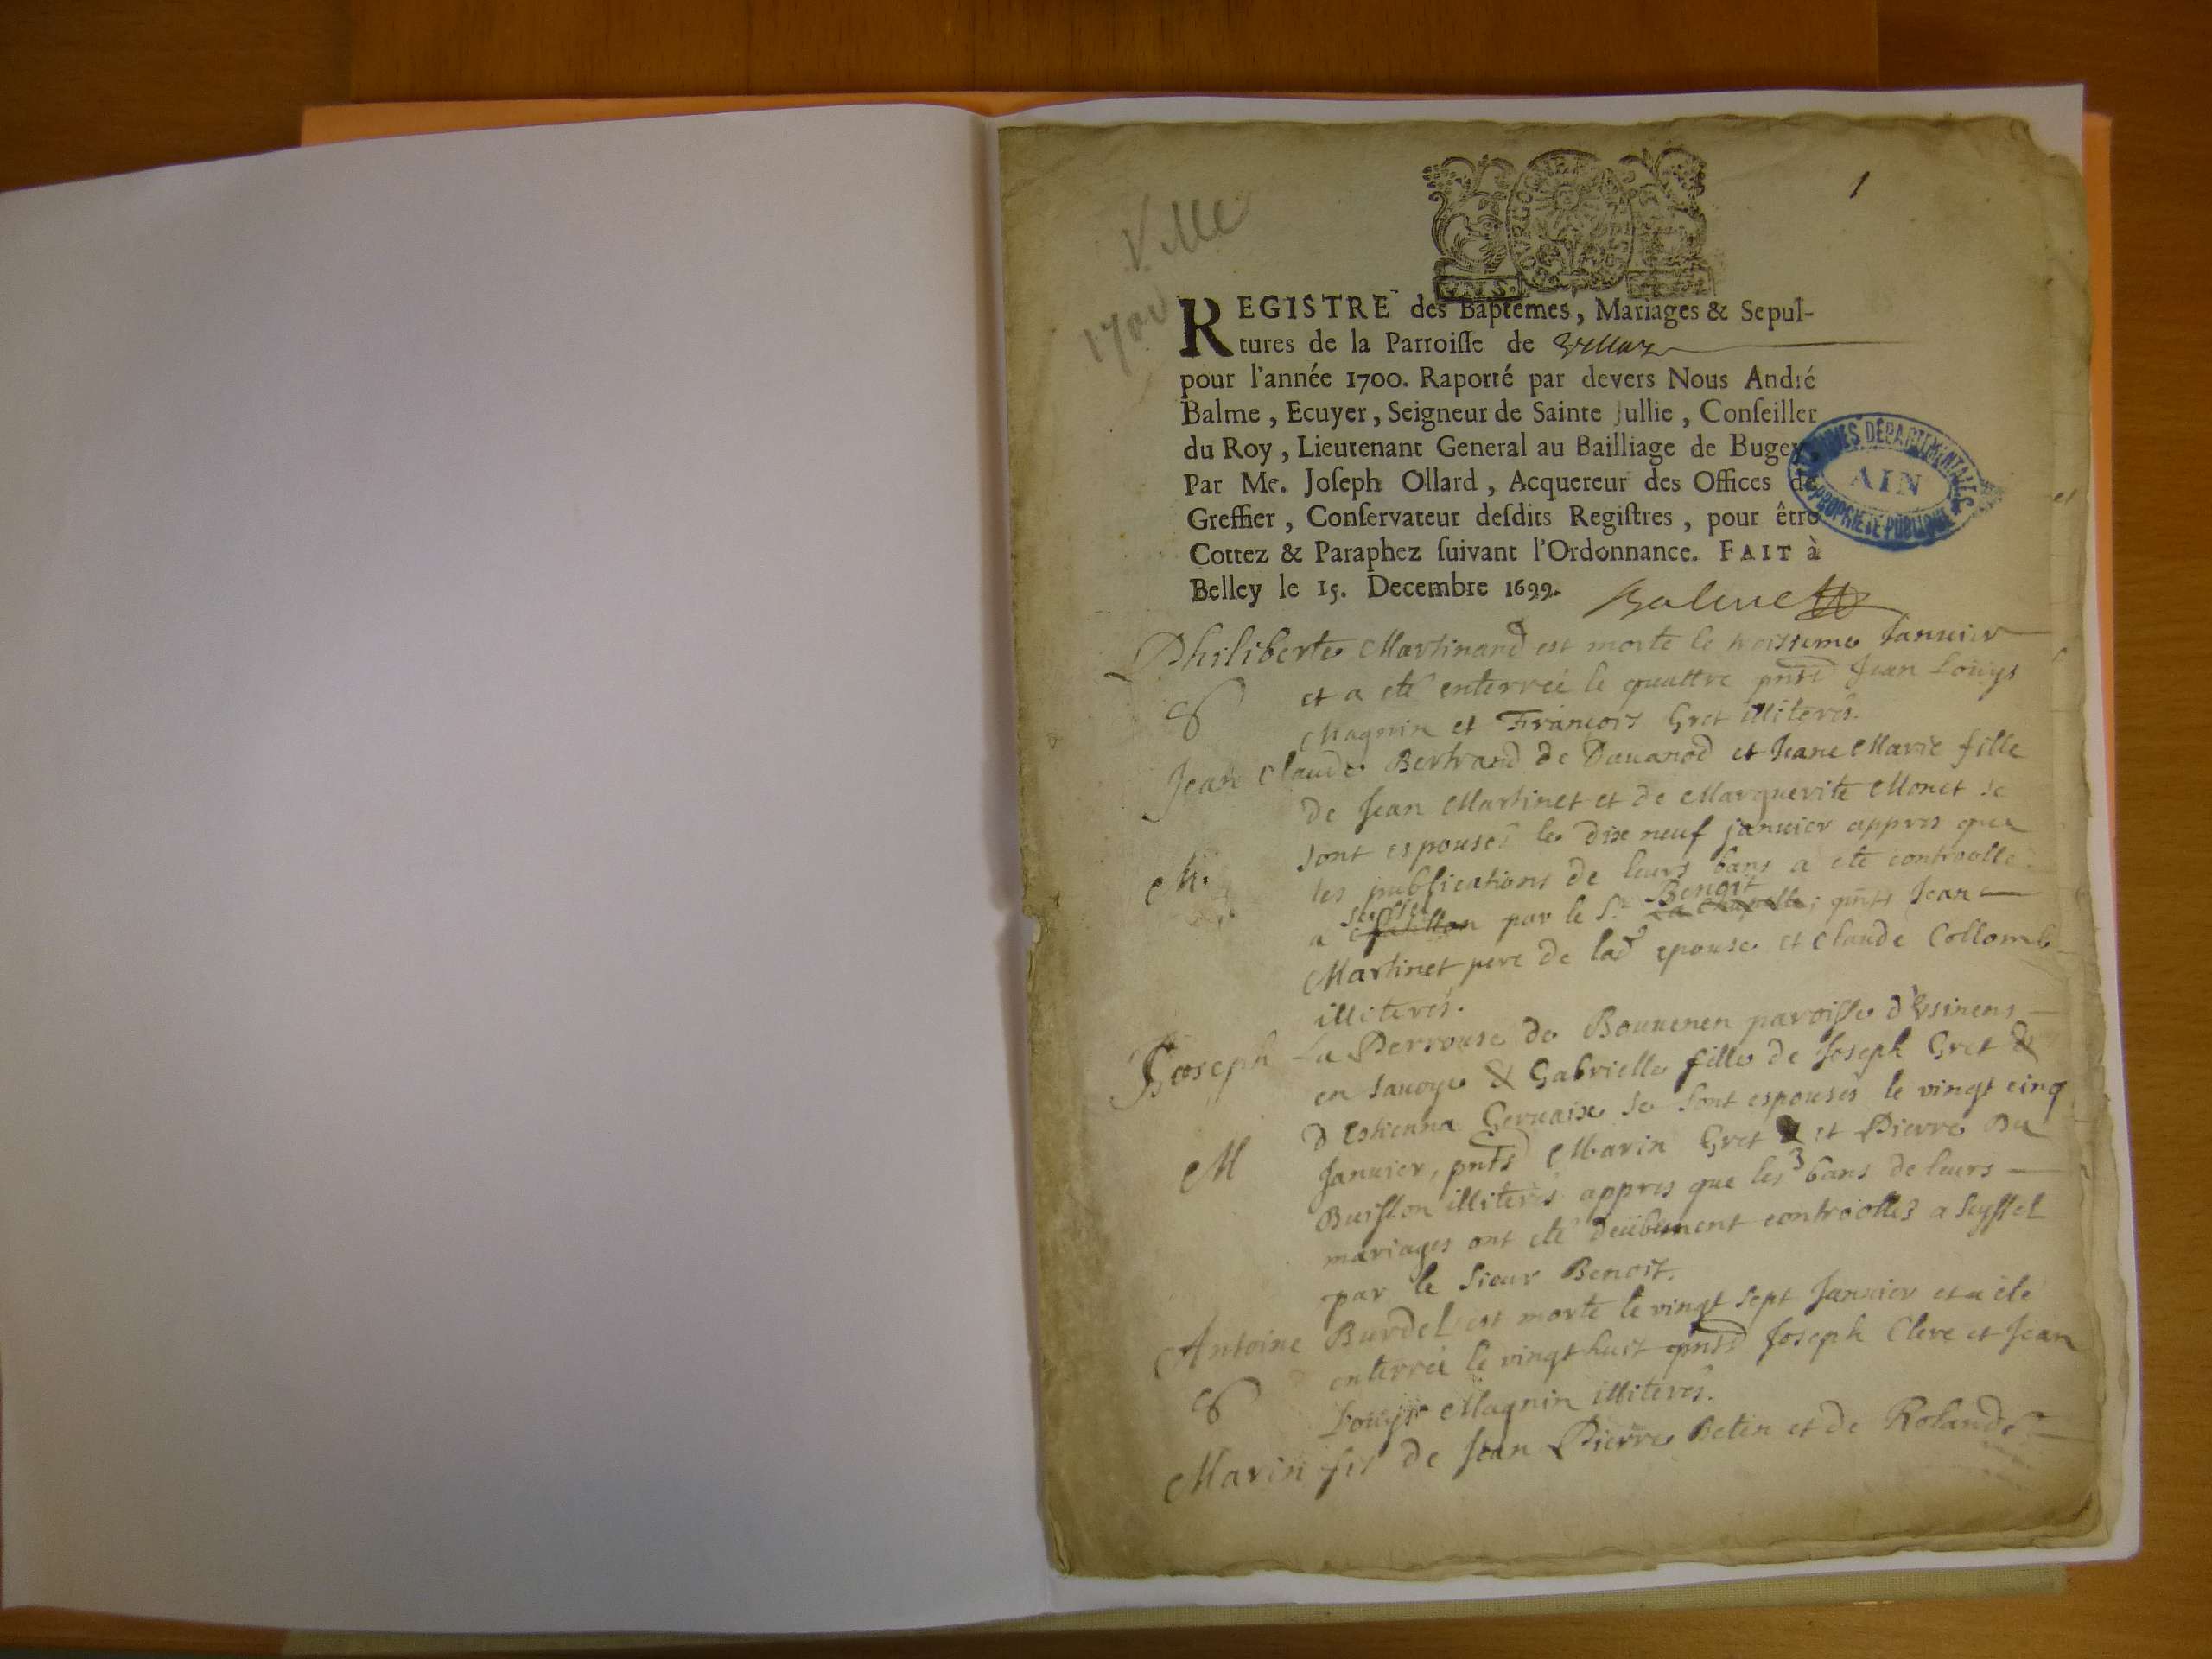 1
Ville
1700
REGISTRE des Baptêmes, Mariages & Sepul-
tures de la Parroiſſe de
pour l'année 1700. Raporté par devers Nous André
Balme, Ecuyer, Seigneur de Sainte Jullie, Conſeiller
du Roy, Lieutenant General au Bailliage de Bugey,
Par Me. Joſeph Ollard, Acquereur des Offices de
Greffier, Conſervateur deſdits Regiſtres, pour être
Cottez & Paraphez ſuivant l'Ordonnance. FAIT à
Belley le 15. Decembre 1699.
Balme
ARCHIVES DÉPARTEMENTALES
AIN
PROPRIÉTÉ PUBLIQUE
Philiberte Martinand est morte le troisieme Januier
et a eté enterreé le quattre pnts Jean Loüys
Magnin et François Gret illiterés.
Jean Claude Bertrand de et Jeane Marie fille
de Jean Martinet et de Marguerite Monet se
sont espousés le dix neuf januier appres que
M.
les publications de leurs bans a eté controollé
a Seyssel par le Sr. Benoit pnts Jean
Martinet pere de lad epouse et Claude Collomb
illiterés.
Joseph La Perrouse de paroisse
en Sauoye & Gabrielle fille de Joseph Gret &
d Estienna Geruaix se sont espousés le vingt cinq
M
Januier, pnts Marin Gret et Pierre Du
Buisson illiterés appres que les 3 bans de leurs
mariages ont eté deübement controollés a Seyssel
par le Sieur Benoit.
Antoine Burdel est morte le vingt sept Januier et a eté
enterreé le vingt huit pnts Joseph Clerc et Jean
Louys Magnin illiterés.
Marin fils de Jean Pierre Betin et de Rolande